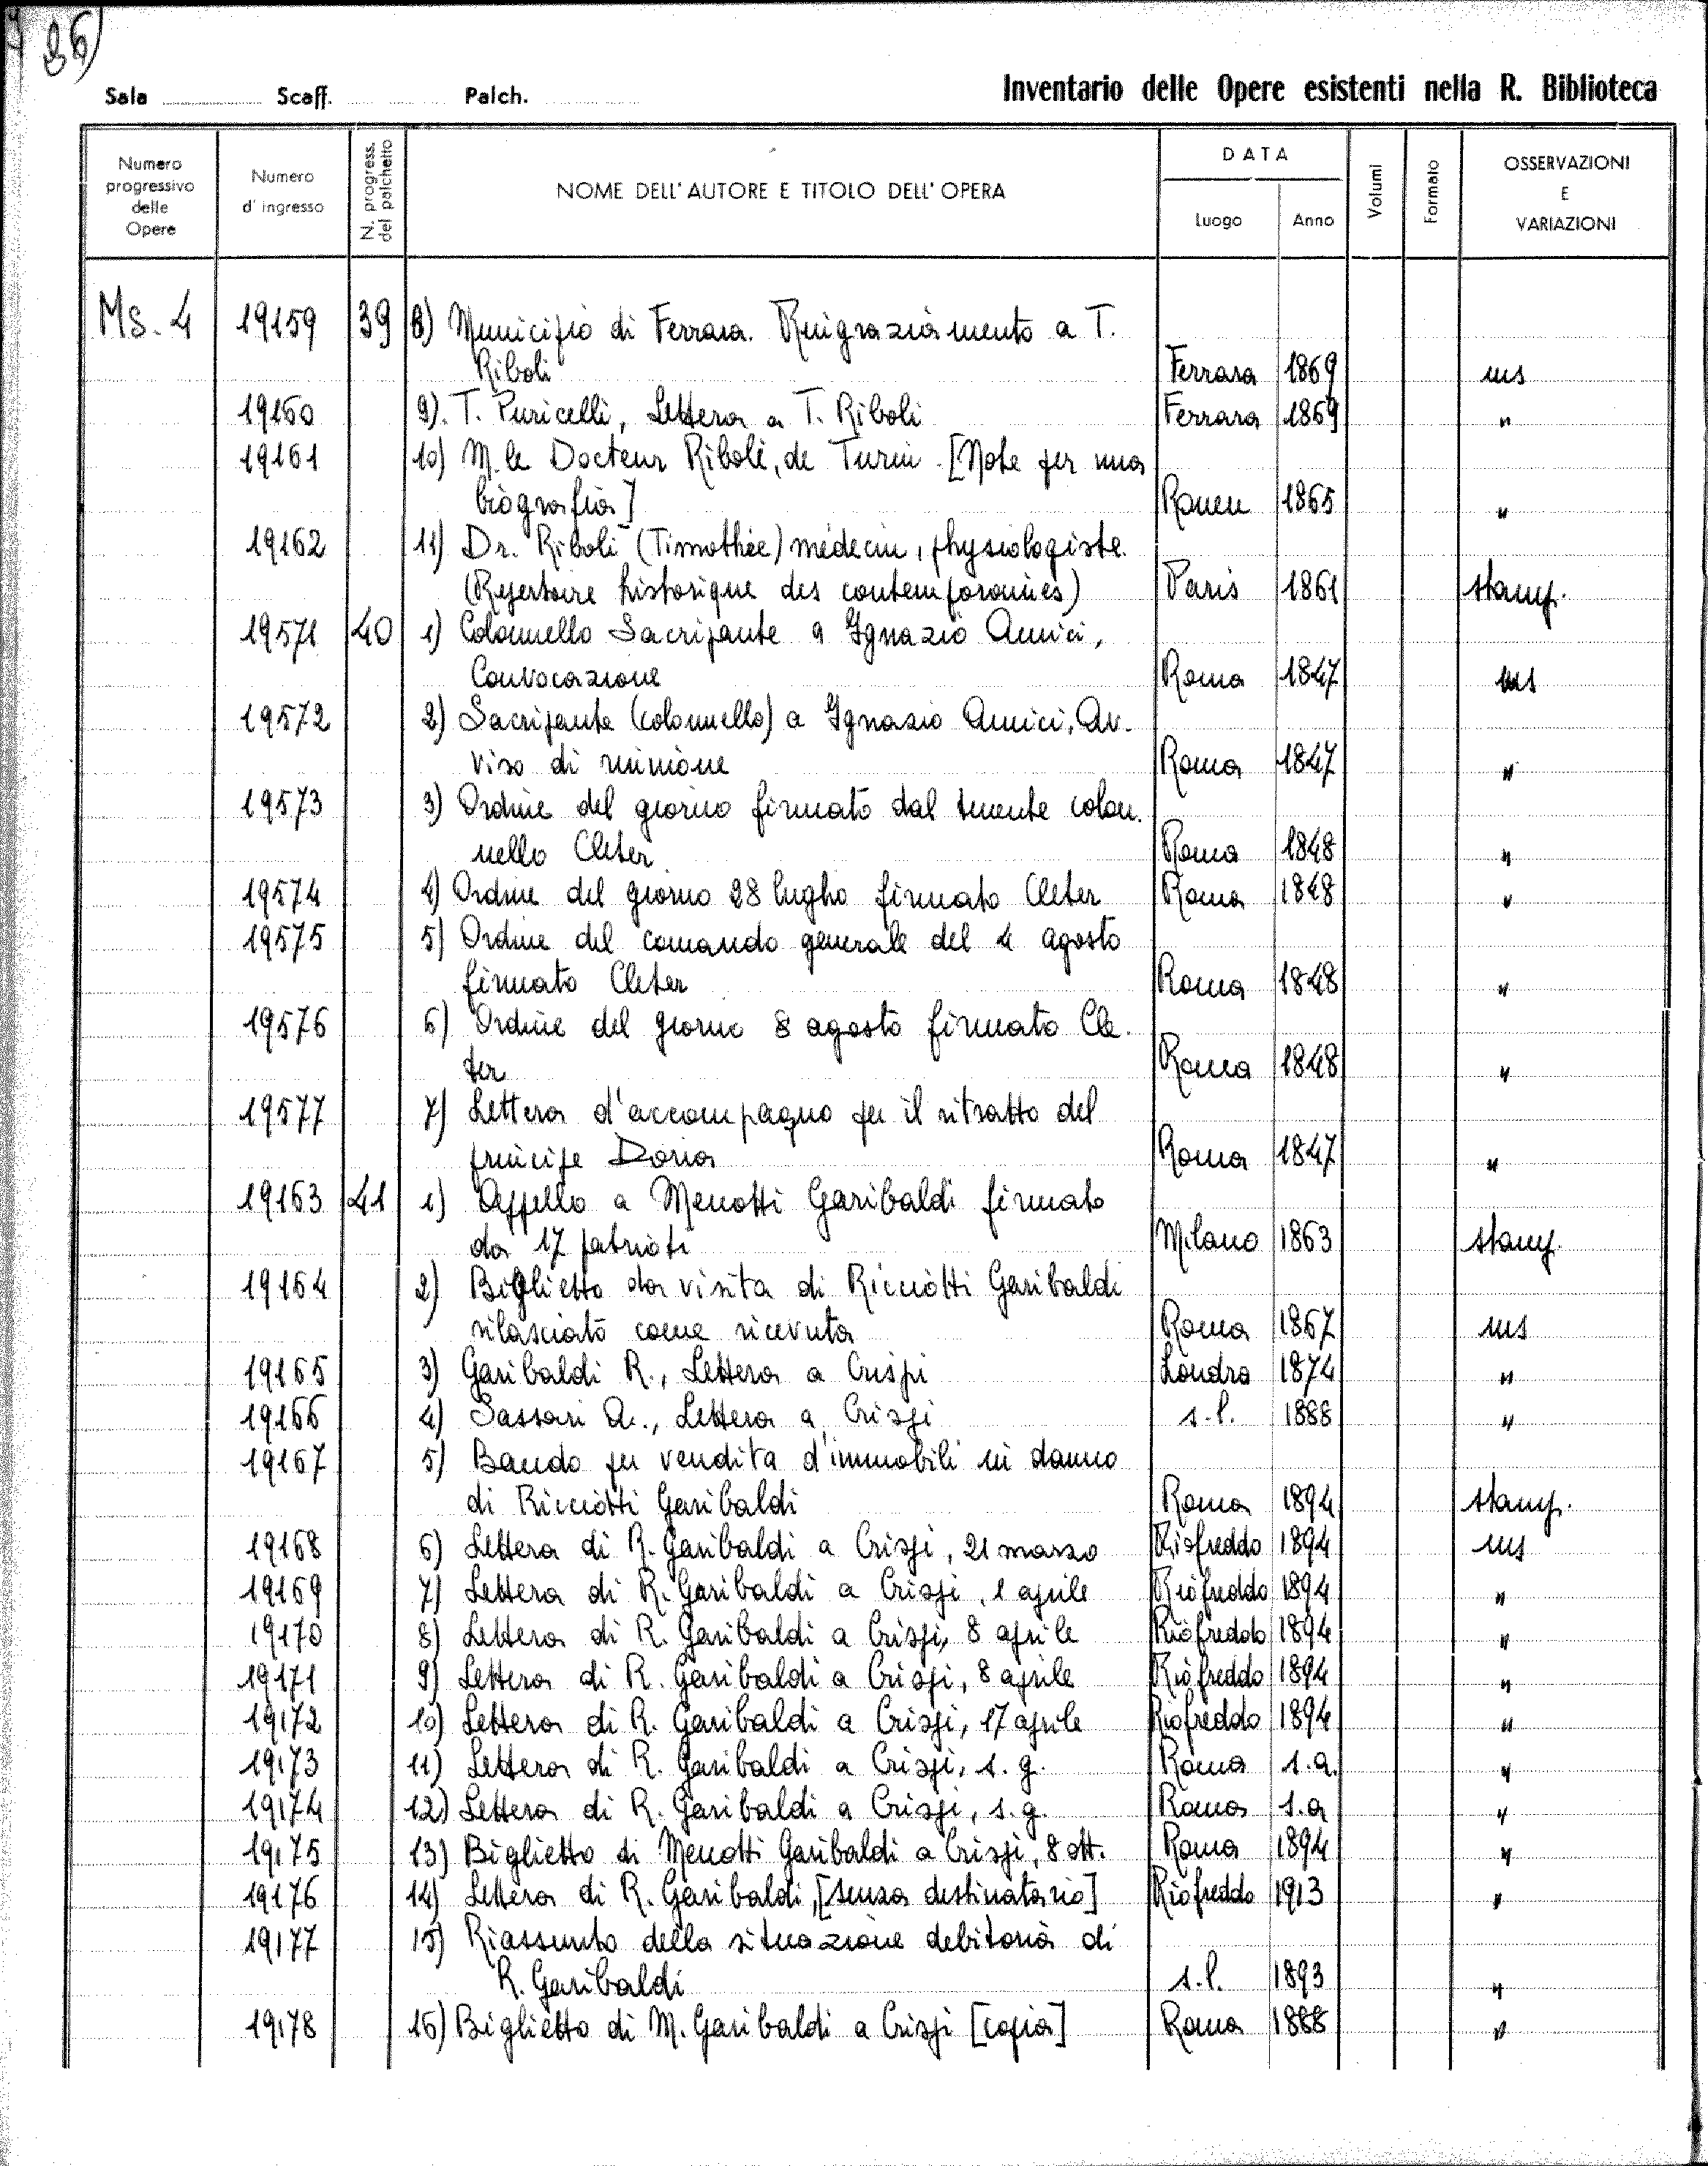 86)
Sala Scaff. Palch. Inventario delle Opere esistenti nella R. Biblioteca
Numero progressivo delle Opere | Numero d'ingresso | N. progress. del palchetto | NOME DELL'AUTORE E TITOLO DELL'OPERA | DATA | Luogo | Anno | Volumi | Formato | OSSERVAZIONI E VARIAZIONI
Ms. 4 19159 39 8) Municipio di Ferrara. Ringraziamento a T.
Riboli Ferrara 1869 ms
19160 9). T. Puricelli, Lettera a T. Riboli Ferrara 1869 "
19161 10) M. le Docteur Riboli, de Turin. [Note per una
biografia] Rouen 1865 "
19162 11) Dr. Riboli (Timothée) médecin, physiologiste.
(Repertoire historique des contemporaines) Paris 1861 stamp.
19571 40 1) Colonnello Sacripante a Ignazio Amici,
Convocazione Roma 1847 ms
19572 2) Sacripante (colonnello) a Ignazio Amici, Av-
viso di riunione Roma 1847 "
19573 3) Ordine del giorno firmato dal tenente colon-
nello Cleter Roma 1848 "
19574 4) Ordine del giorno 28 luglio firmato Cleter Roma 1848 "
19575 5) Ordine del comando generale del 4 agosto
firmato Cleter Roma 1848 "
19576 6) Ordine del giorno 8 agosto firmato Cle-
ter Roma 1848 "
19577 7) Lettera d'accompagno per il ritratto del
principe Doria Roma 1847 "
19163 41 1) Appello a Menotti Garibaldi firmato
da 17 patrioti Milano 1863 stamp.
19164 2) Biglietto da visita di Ricciotti Garibaldi
rilasciato come ricevuta Roma 1867 ms
19165 3) Garibaldi R., Lettera a Crispi Londra 1874 "
19166 4) Sassari A., Lettera a Crispi s.l. 1888 "
19167 5) Bando per vendita d'immobili in danno
di Ricciotti Garibaldi Roma 1894 stamp.
19168 6) Lettera di R. Garibaldi a Crispi, 21 marzo Riofreddo 1894 ms
19169 7) Lettera di R. Garibaldi a Crispi, 1 aprile Riofreddo 1894 "
19170 8) Lettera di R. Garibaldi a Crispi, 8 aprile Riofreddo 1894 "
19171 9) Lettera di R. Garibaldi a Crispi, 8 aprile Riofreddo 1894 "
19172 10) Lettera di R. Garibaldi a Crispi, 17 aprile Riofreddo 1894 "
19173 11) Lettera di R. Garibaldi a Crispi, s.g. Roma s.a. "
19174 12) Lettera di R. Garibaldi a Crispi, s.g. Roma s.a "
19175 13) Biglietto di Menotti Garibaldi a Crispi, 8 ott. Roma 1894 "
19176 14) Lettera di R. Garibaldi, [senza destinatario] Riofreddo 1913 "
19177 15) Riassunto della situazione debitoria di
R. Garibaldi s.l. 1893 "
19178 16) Biglietto di M. Garibaldi a Crispi [copia] Roma 1888 "